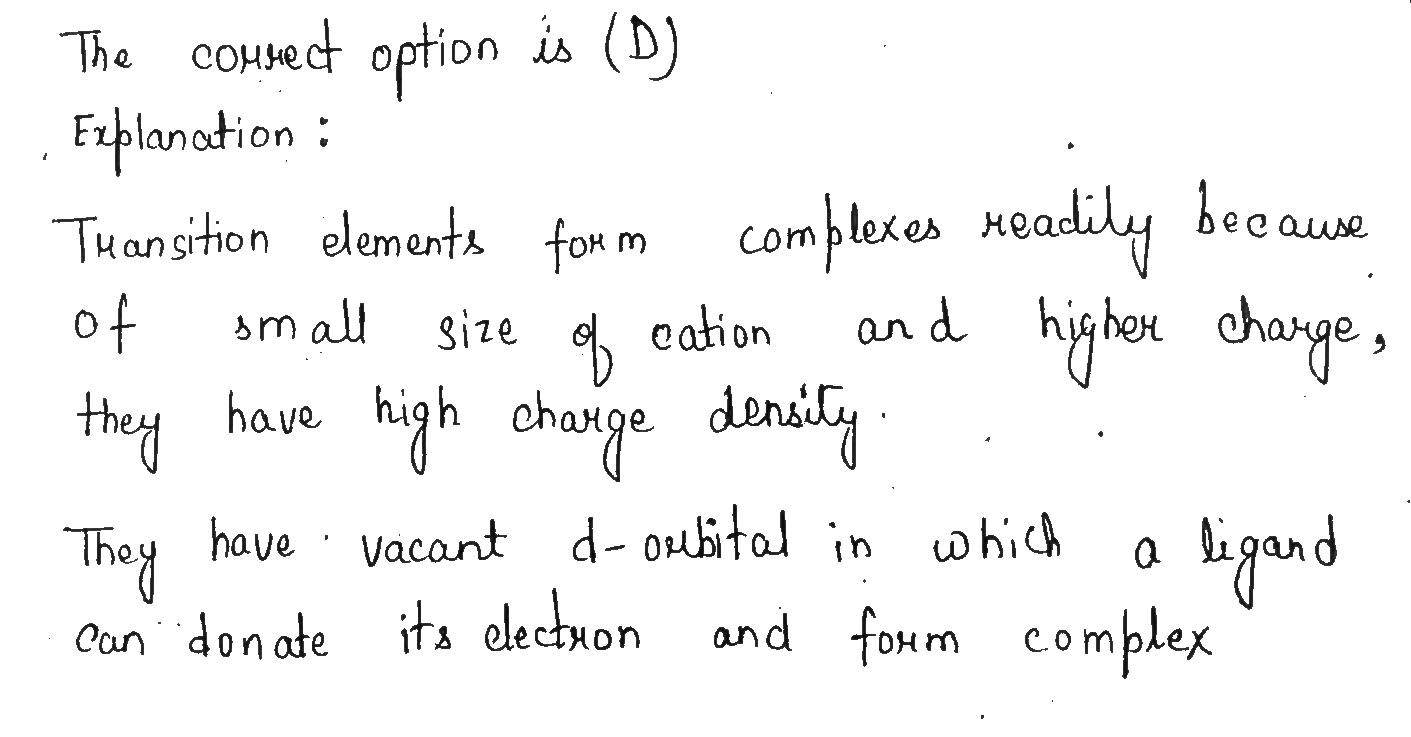 The correct option is (D)
Explanation :
Transition elements form complexes readily because
of small size of cation and higher charge,
they have high charge density.
They have vacant d-orbital in which a ligand
can donate its electron and form complex